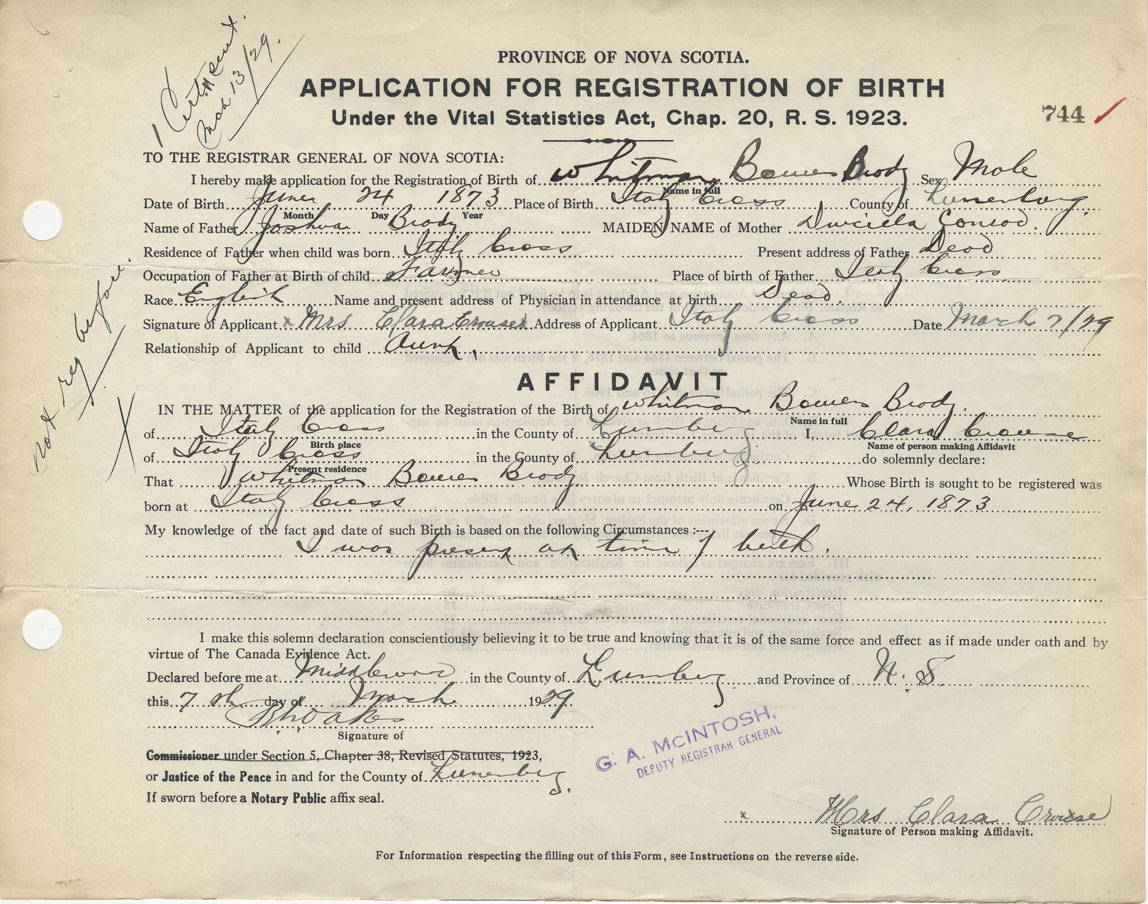 1 Cert sent.
Mch 13/29.
PROVINCE OF NOVA SCOTIA.
APPLICATION FOR REGISTRATION OF BIRTH
Under the Vital Statistics Act, Chap. 20, R. S. 1923.
744
TO THE REGISTRAR GENERAL OF NOVA SCOTIA:
I hereby make application for the Registration of Birth of Whitman Bowers Brody Sex Male
Name in full
Date of Birth June 24 1873 Place of Birth Italy Cross County of Lunenburg.
Month Day Year
Name of Father Joshua Brody MAIDEN NAME of Mother Drucilla Conrod.
Residence of Father when child was born Italy Cross Present address of Father Dead
Occupation of Father at Birth of child Farmer Place of birth of Father Italy Cross
Race English Name and present address of Physician in attendance at birth Dead.
Signature of Applicant x Mrs. Clara Crouse Address of Applicant Italy Cross Date March 7/29
Relationship of Applicant to child Aunt.
not reg before.
X
AFFIDAVIT
IN THE MATTER of the application for the Registration of the Birth of Whitman Bowers Brody.
Name in full
of Italy Cross in the County of Lunenburg I, Clara Crouse
Birth place Name of person making Affidavit
of Italy Cross in the County of Lunenburg do solemnly declare:
Present residence
That Whitman Bowers Brody Whose Birth is sought to be registered was
born at Italy Cross on June 24, 1873
My knowledge of the fact and date of such Birth is based on the following Circumstances :—
I was present at time of birth.
I make this solemn declaration conscientiously believing it to be true and knowing that it is of the same force and effect as if made under oath and by
virtue of The Canada Evidence Act.
Declared before me at Middlewood in the County of Lunenburg and Province of N. S.
this 7 th day of March 1929.
Signature of
Commissioner under Section 5, Chapter 38, Revised Statutes, 1923,
or Justice of the Peace in and for the County of Lunenburg.
If sworn before a Notary Public affix seal.
G. A. McINTOSH,
DEPUTY REGISTRAR GENERAL
x Mrs Clara Crouse
Signature of Person making Affidavit.
For Information respecting the filling out of this Form, see Instructions on the reverse side.